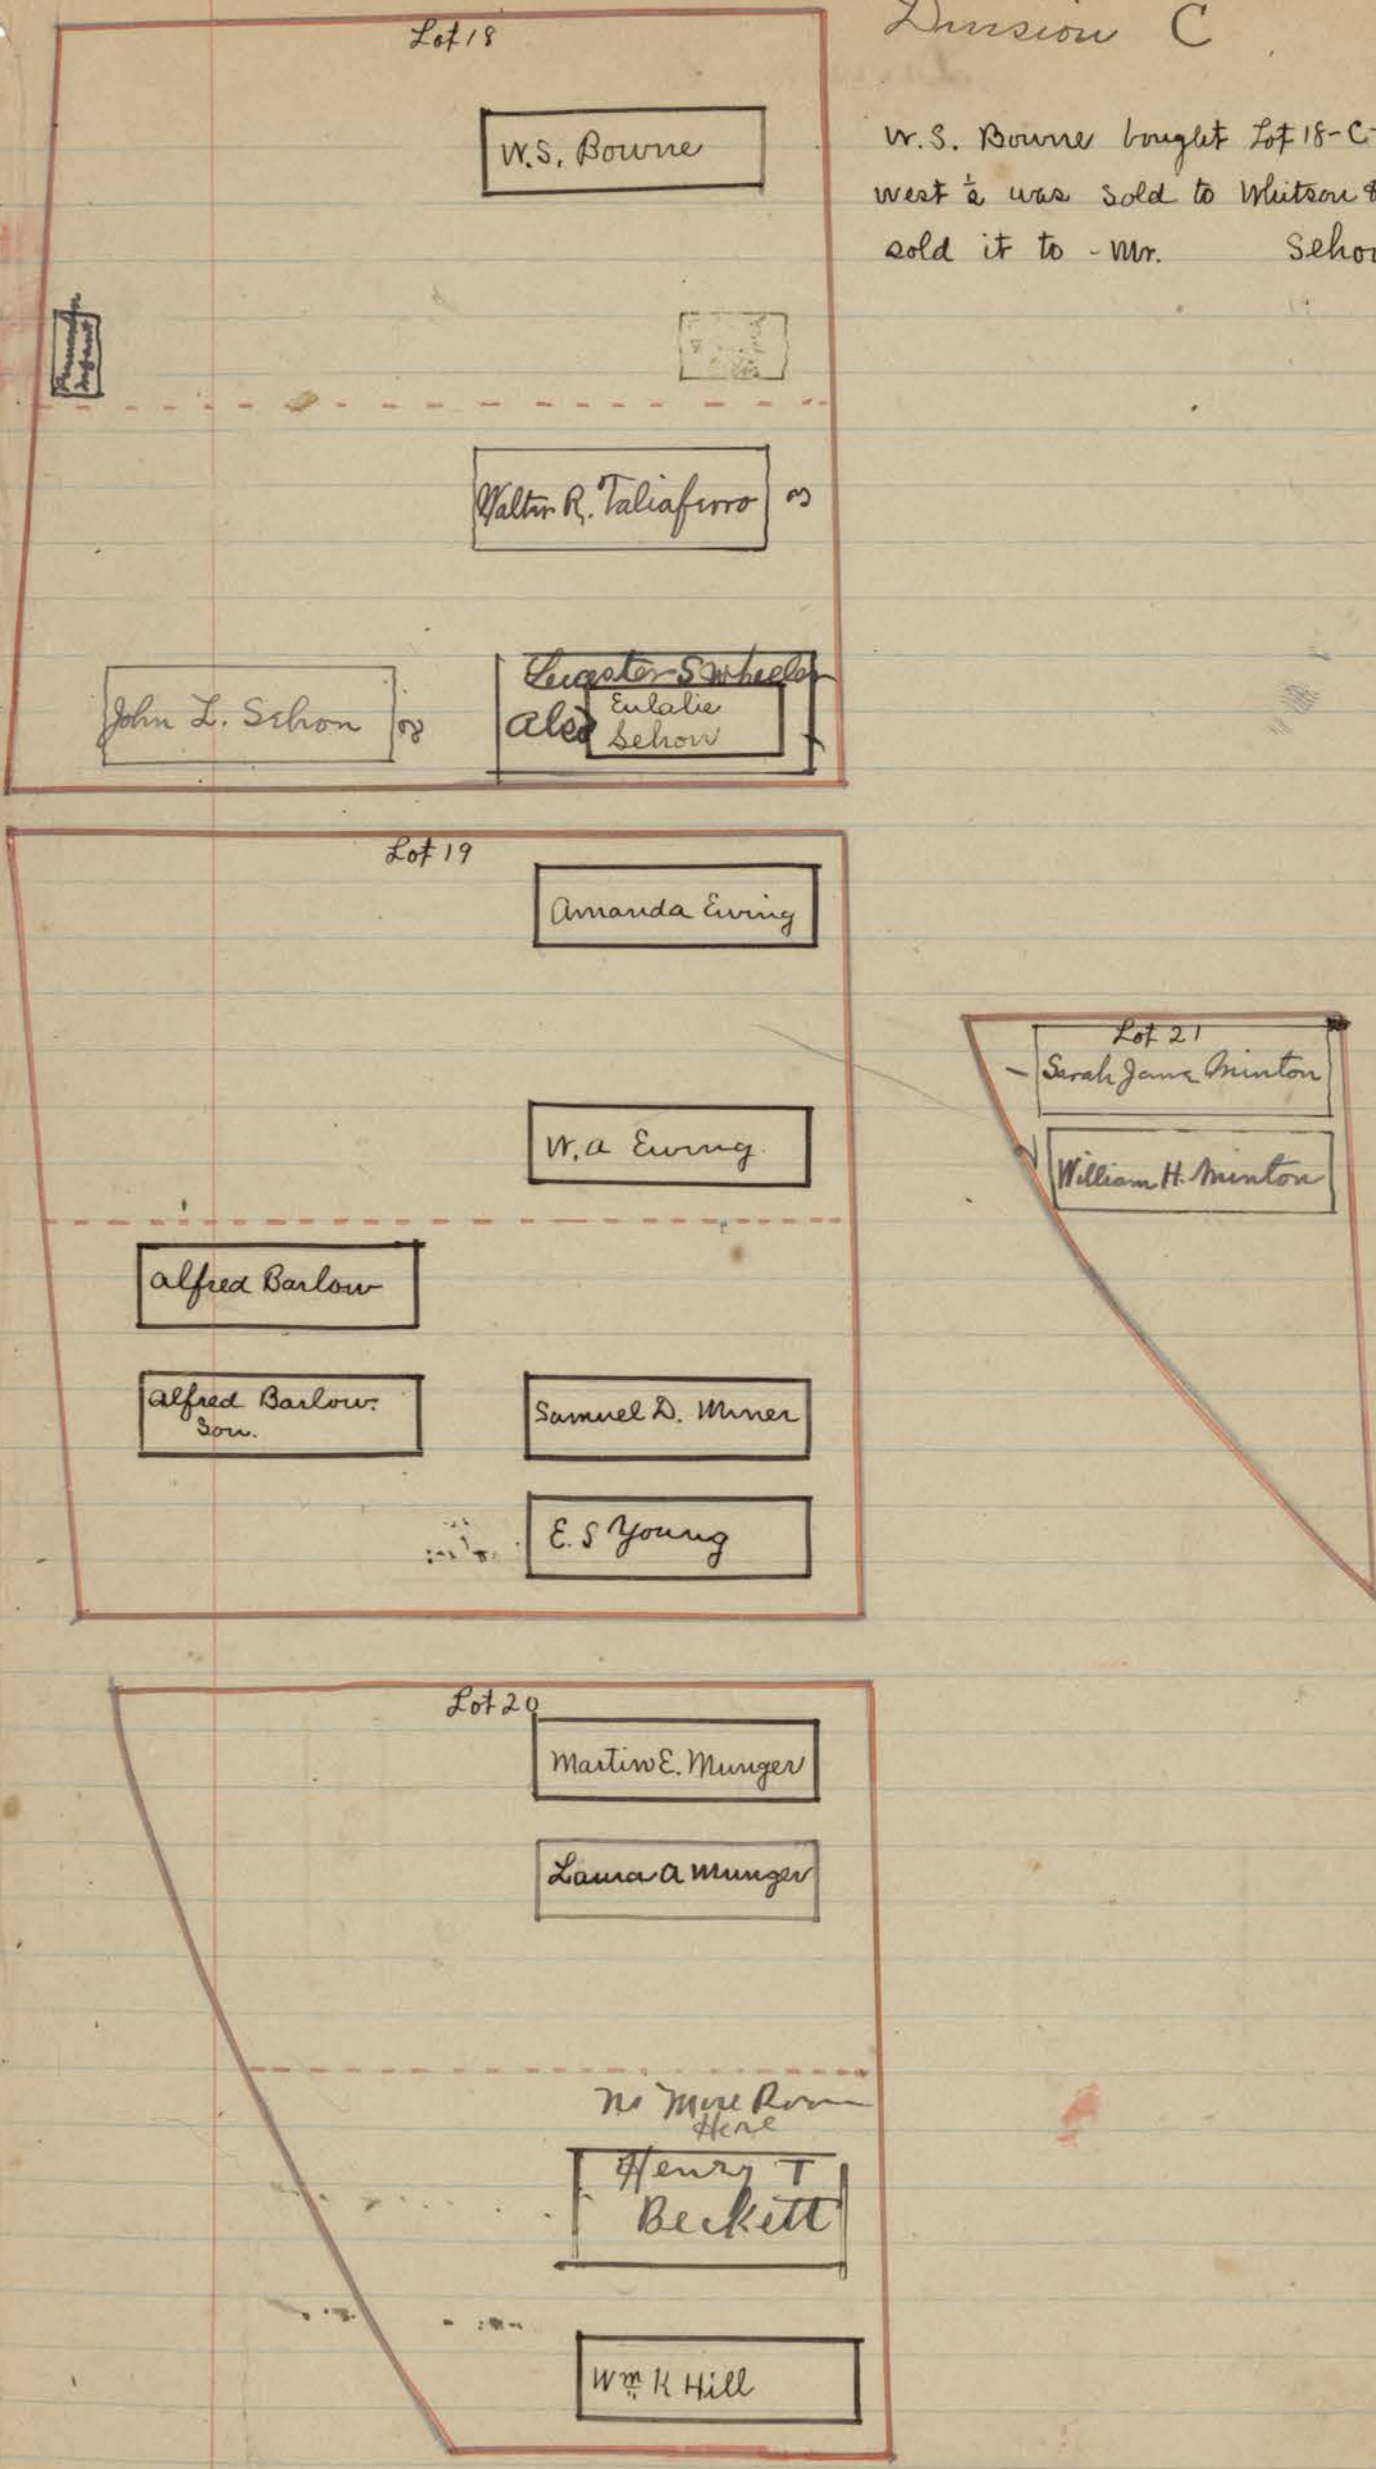 Division C
Lot 18
W.S. Bowne
W.S. Bowne bought Lot 18-C-
west ½ was sold to Whitson &
sold it to - Mr. Sehon
Infant
Walter R. Taliaferro
John L. Sehon
Leicester S Wheeler
also
Eulalie
Sehon
Lot 19
Amanda Ewing
W. A Ewing.
Alfred Barlow
Alfred Barlow.
Son.
Samuel D. Miner
E. S Young
Lot 21
Sarah Jane Minton
William H. Minton
Lot 20
Martin E. Munger
Laura A Munger
No More Room
Here
Henry T
Beckett
Wm K Hill